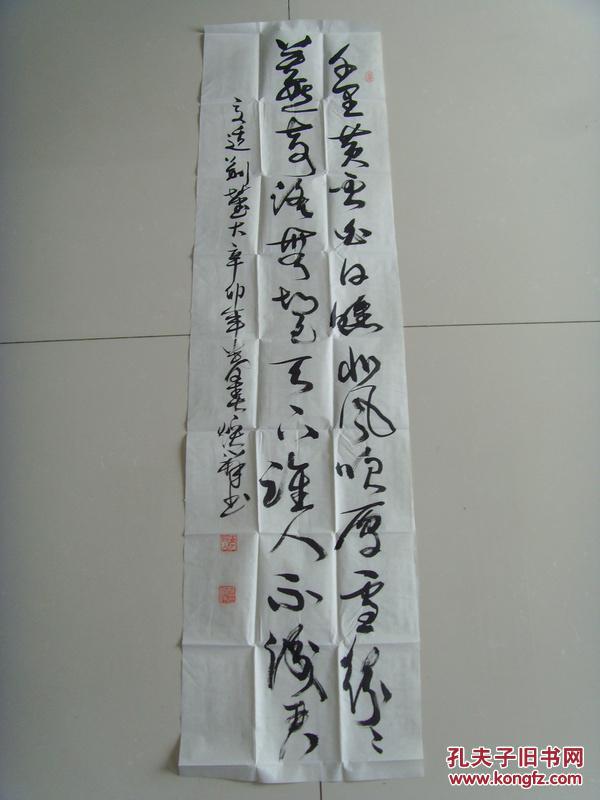 千里黄云白日曛北风吹雁雪纷々
莫愁前路無知己天下谁人不识君
高适别董大辛卯年春书
孔夫子旧书网
www.kongfz.com